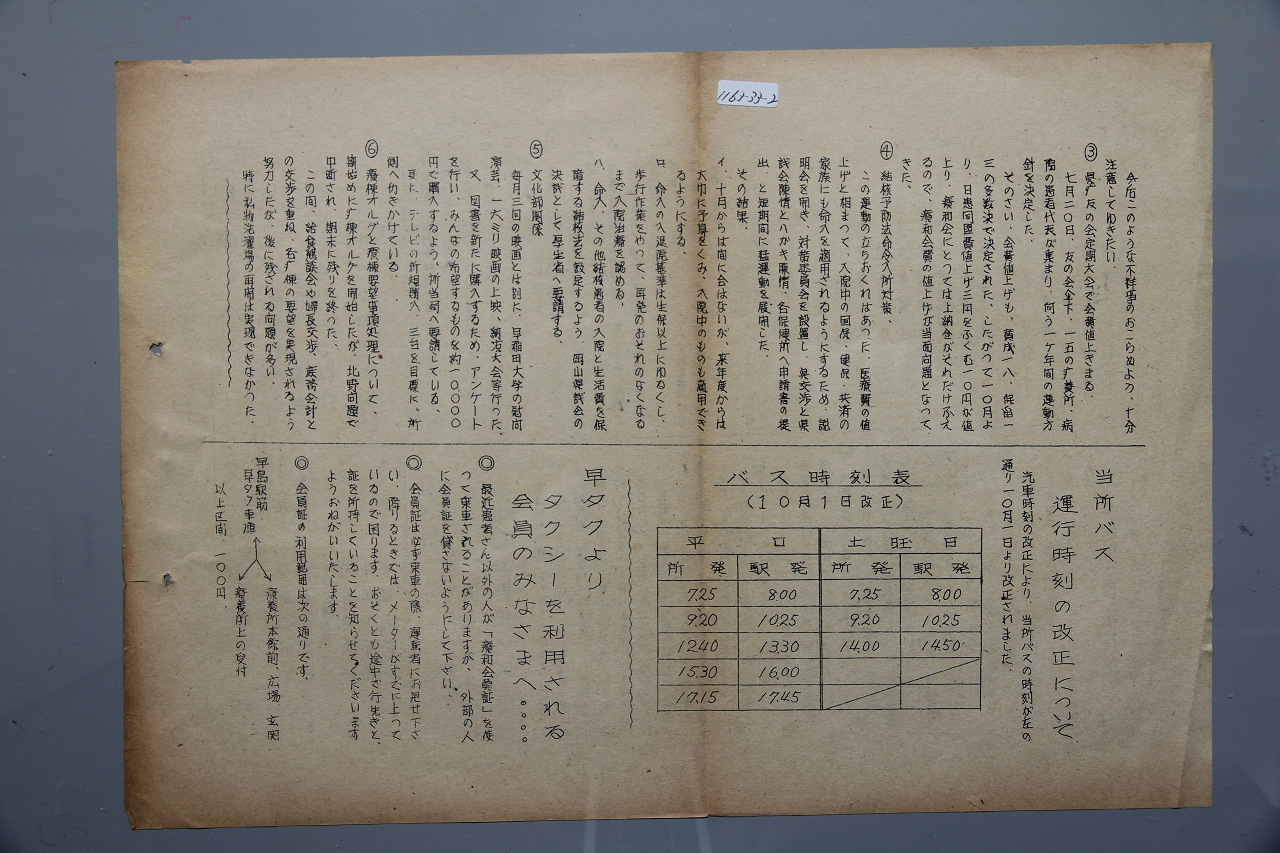 1169-39-2
今后このような不祥事のおこらぬよう、十分
注意してゆきたい。
③ 県疗友の会定期大会で会費値上きまる。
七月二〇日、友の会傘下、一五の疗養所、病
院の患者代表が集まり、向う一ヶ年間の運動方
針を決定した。
そのさい、会費値上げも、賛成一八、保留一
三の多数決で決定された。したがつて一〇月よ
り、日患同盟費値上げ三円をふくむ一〇円が値
上り、療和会にとつては上納金がそれだけふえ
るので、療和会費の値上げが当面問題となつて
きた。
④ 結核予防法命令入所対策。
この運動の立ちおくれはあつた、医療費の値
上げと相まつて、入院中の国保、健保、共済の
家族にも命入を適用されるようにするため、説
明会を開き、対策委員会を設置し、県交渉と県
議会陳情とハガキ陳情、各保健所へ申請書の提
出、と短期間に猛運動を展開した。
その結果、
イ、十月からは間に合はないが、来年度からは
大巾に予算をくみ、入院中のものも適用でき
るようにする。
ロ、命入の入退院基準は生保以上にゆるくし、
歩行作業をやつて、再発のおそれのなくなる
まで入院治療を認める。
ハ、命入、その他結核患者の入院と生活費を保
障する結核法を設定するよう、岡山県議会の
決議として厚生省へ要請する。
⑤ 文化部関係
毎月三回の映画とは別に、早稲田大学の慰問
演芸、一六ミリ映画の上映、納涼大会等行つた、
又、図書を新たに購入するため、アンケート
を行い、みんなの希望するものを約一〇、〇〇〇
円で購入するよう、所当局へ要請している。
更に、テレビの新規購入、三台を目標に、所
側へ働きかけている。
⑥ 療棟オルグと療棟要望事項処理について、
期始めに疗棟オルグを開始したが、北野問題で
中断され、期末に残りを終つた。
この間、給食懇談会や婦長交渉、庶務会計と
の交渉を重ね、各疗棟の要望を実現されるよう
努力したが、後に残される問題が多い。
特に私物洗濯場の再開は実現できなかつた、
当所バス
運行時刻の改正について
汽車時刻の改正により、当所バスの時刻が左の
通り一〇月一日より改正されました。
バス時刻表
(10月1日改正)
平 日 土曜日
所発 駅発 所発 駅発
7.25 8.00 7.25 8.00
9.20 10.25 9.20 10.25
12.40 13.30 14.00 14.50
15.30 16.00
17.15 17.45
早タクより、
タクシーを利用される
会員のみなさまへ。。。。
◎ 最近患者さん以外の人が「療和会員証」を使
つて乗車されることがありますが、外部の人
に会員証を貸さないようにして下さい。
◎ 会員証は必ず乗車の際、運転者にお見せ下さ
い、降りるときでは、メーターがすでに上つて
いるので困ります、おそくとも途中で行先きと、
証を所持していることを知らせてくださいます
ようおねがいいたします。
◎ 会員証の利用範囲は次の通りです。
早島駅筋
早タク車庫
療養所本館前、広場、玄関
療養所上の受付
以上区間、一〇〇円、